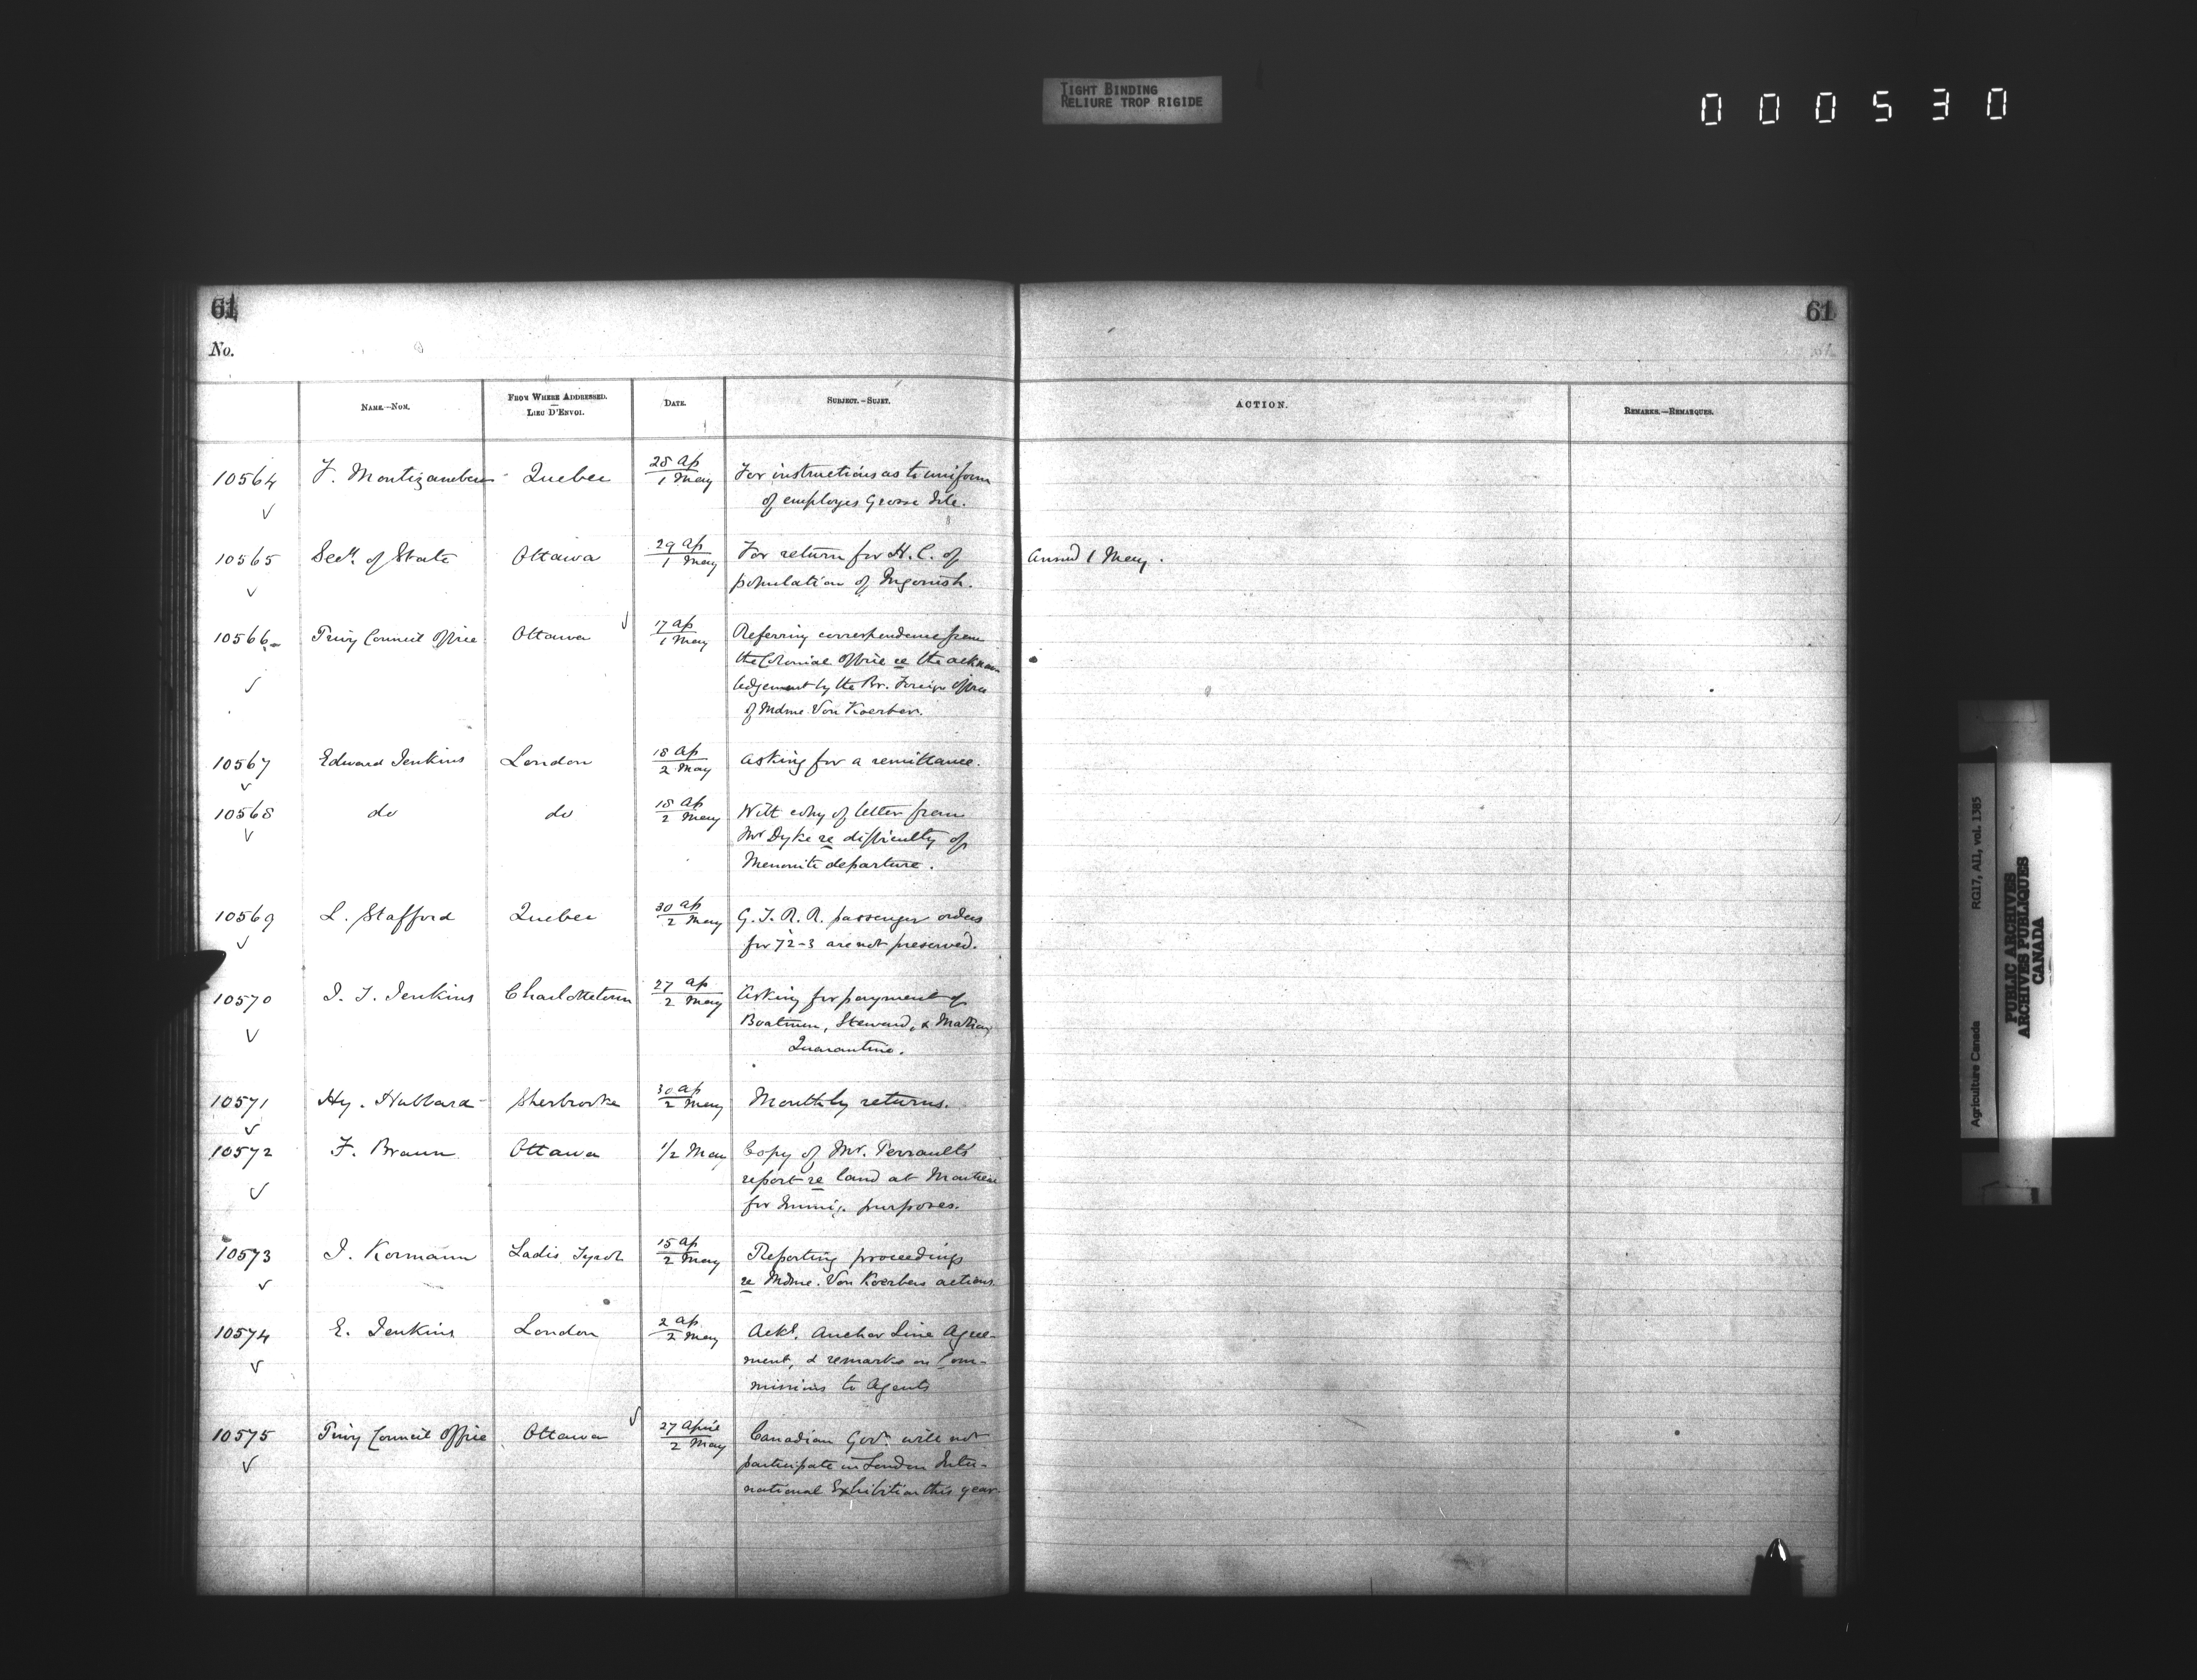 TIGHT BINDING
RELIURE TROP RIGIDE
000530
61
61
No.
NAME.—NOM.
FROM WHERE ADDRESSED.
LIEU D'ENVOI.
DATE.
SUBJECT.—SUJET.
ACTION.
REMARKS.—REMARQUES.
10564 F. Montizambert Quebec 28 Ap / 1 May For instructions as to uniform
of employes Grosse Isle.
10565 Secy. of State Ottawa 29 Ap / 1 May For return for H. C. of
population of Ingonish.
Answd 1 May.
10566 Privy Council Office Ottawa 17 Ap / 1 May Referring correspondence from
the Colonial Office re the acknow
ledgement by the Br. Foreign Office
of Mdme Von Koerber.
10567 Edward Jenkins London 18 Ap / 2 May Asking for a remittance.
10568 do do 18 Ap / 2 May With copy of letter from
Mr Dyke re difficulty of
Menonite departure.
10569 L. Stafford Quebec 30 Ap / 2 May G. T. R. R. passenger orders
for 72-3 are not preserved.
10570 J. T. Jenkins Charlottetown 27 Ap / 2 May Asking for payment of
Boatmen, Steward, & Matron,
Quarantine.
10571 Hy. Hubbard Sherbrooke 30 Ap / 2 May Monthly returns.
10572 F. Braun Ottawa 1/2 May Copy of Mr. Perrault's
report re land at Montreal
for Immig. purposes.
10573 J. Kormann Ladis Tyrol 15 Ap / 2 May Reporting proceedings
re Mdme. Von Koerbers actions.
10574 E. Jenkins London 2 Ap / 2 May Ackg. Anchor Line Agree-
ment, & remarks on Com-
missions to Agents
10575 Privy Council Office Ottawa 27 April / 2 May Canadian Govt. will not
participate in London Inter-
national Exhibition this year.
Agriculture Canada RG17, AII, vol. 1385
PUBLIC ARCHIVES
ARCHIVES PUBLIQUES
CANADA